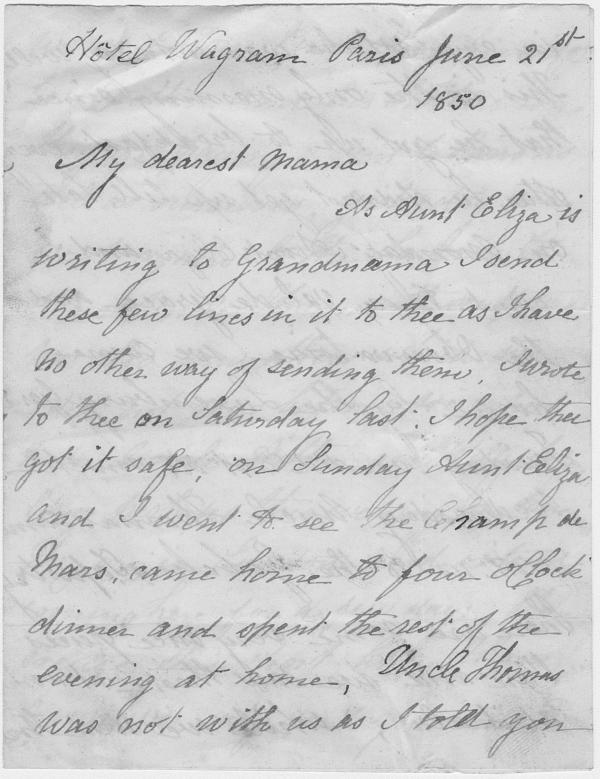 Hôtel Wagram Paris June 21st
1850
My dearest Mama
As Aunt Eliza is
writing to Grandmama I send
these few lines in it to thee as I have
no other way of sending them, I wrote
to thee on Saturday last. I hope thee
got it safe, on Sunday Aunt Eliza
and I went to see the Champ de
Mars, came home to four oClock
dinner and spent the rest of the
evening at home, Uncle Thomas
was not with us as I told you